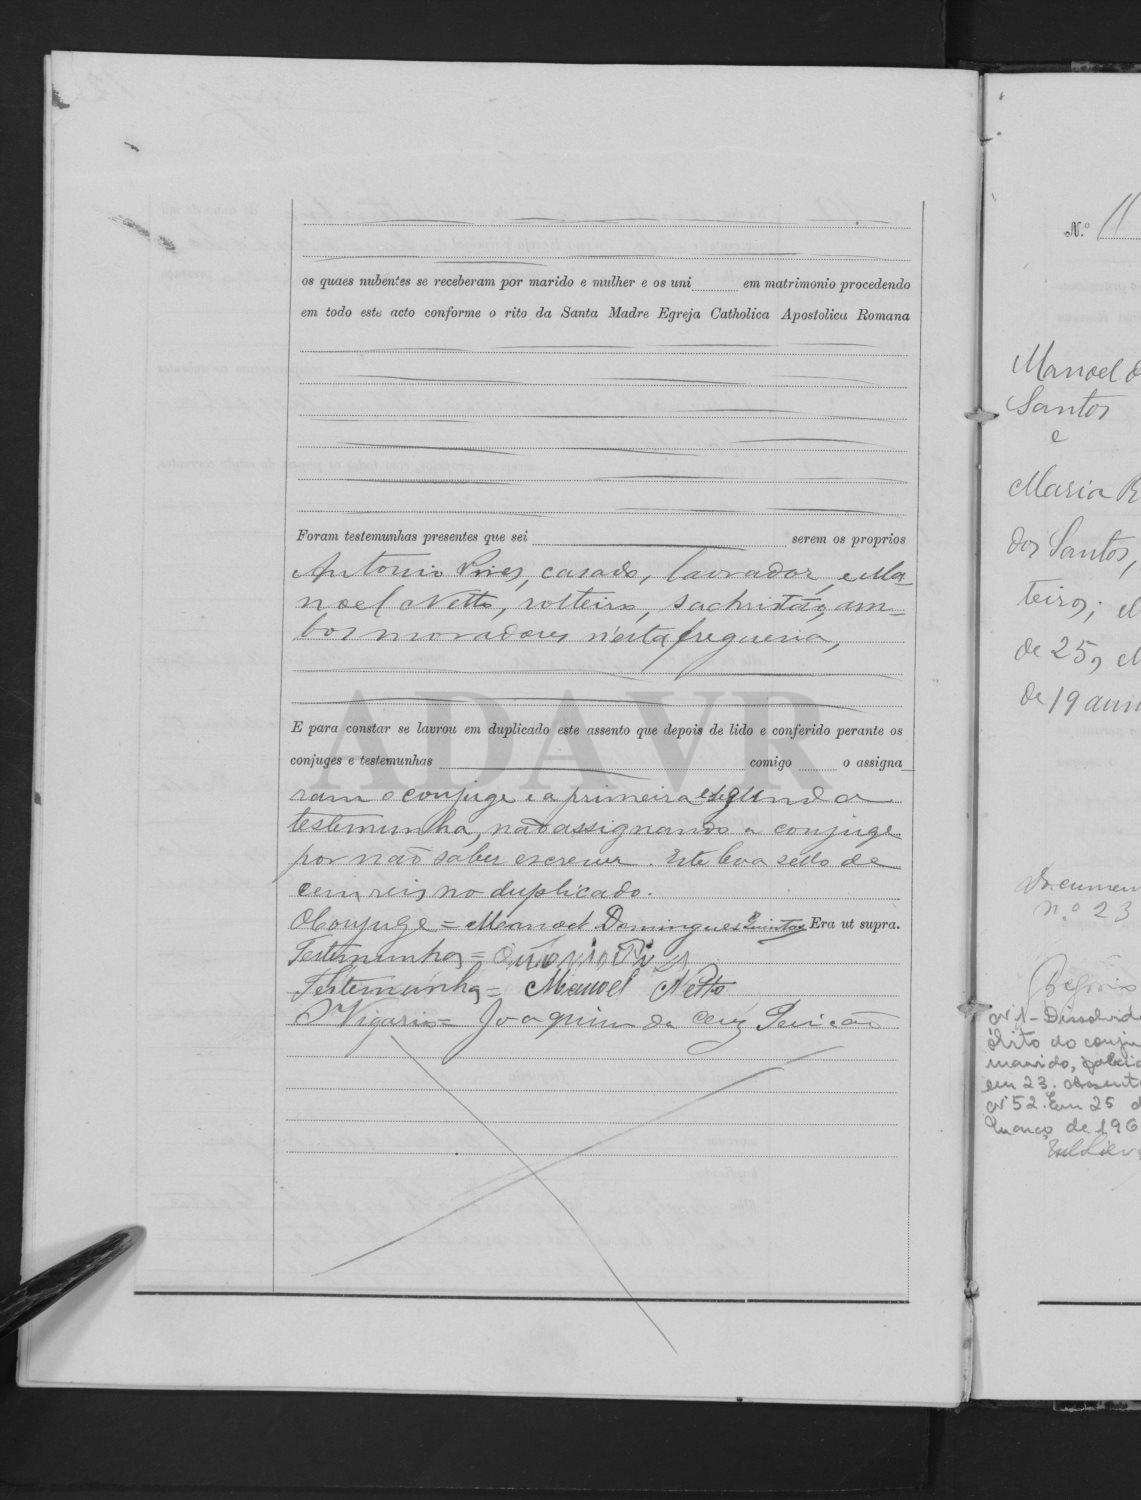 os quaes nubentes se receberam por marido e mulher e os uni em matrimonio procedendo
em todo este acto conforme o rito da Santa Madre Egreja Catholica Apostolica Romana
Foram testemunhas presentes que sei serem os proprios
Antonio Pires, casado, lavrador, e Ma-
noel Netto, solteiro, sachristão, am-
bos moradores n'esta freguesia,
E para constar se lavrou em duplicado este assento que depois de lido e conferido perante os
conjuges e testemunhas comigo o assigna
ram o conjuge e a primeira e segunda
testemunha, não assignando a conjuge
por não saber escrever. Este leva sello de
cem reis no duplicado.
O Conjuge = Manoel Domingues Era ut supra.
Testemunha = Antonio Pires
Testemunha = Manoel Netto
O Vigario = Joaquim da Cruz
ADAVR
N.º 11
Manoel d
Santos
e
Maria R
dos Santos,
teiros; e
de 25, e
de 19 ann
Documen
n.º 23
Nº 1 - Dissolvid
óbito do conju
marido,
em 23. Assent
nº 52. Em 25 d
Março de 196